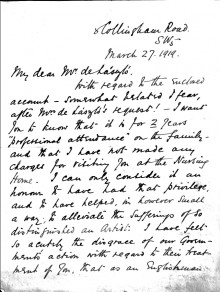 Collingham Road.
S.W.5
March 27. 1919.
My dear Mrs. de László.
With regard to the Enclosed
account – Somewhat belated I fear,
after Mr. de László's request! – I want
You to know that it is for 3 Years
"professional attendance" on the Family –
and that I have not made any
Charges for visiting You at the Nursing
Home. I can only consider it an
honour to have had that privilege,
and to have helped, in however Small
a way, to alleviate the Sufferings of So
distinguished an Artist. I have felt
So acutely the disgrace of our Govern-
ments action with regard to their treat-
ment of You, that as an Englishman